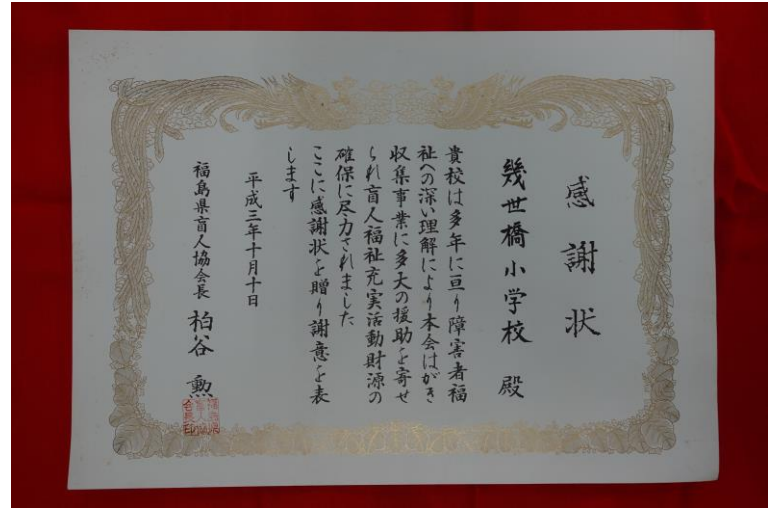 感謝状
幾世橋小学校 殿
貴校は多年に亘り障害者福
祉への深い理解により本会はがき
収集事業に多大の援助を寄せ
られ盲人福祉充実活動財源の
確保に尽力されました
ここに感謝状を贈り謝意を表
します
平成三年十月十日
福島県盲人協会長 柏谷 勲